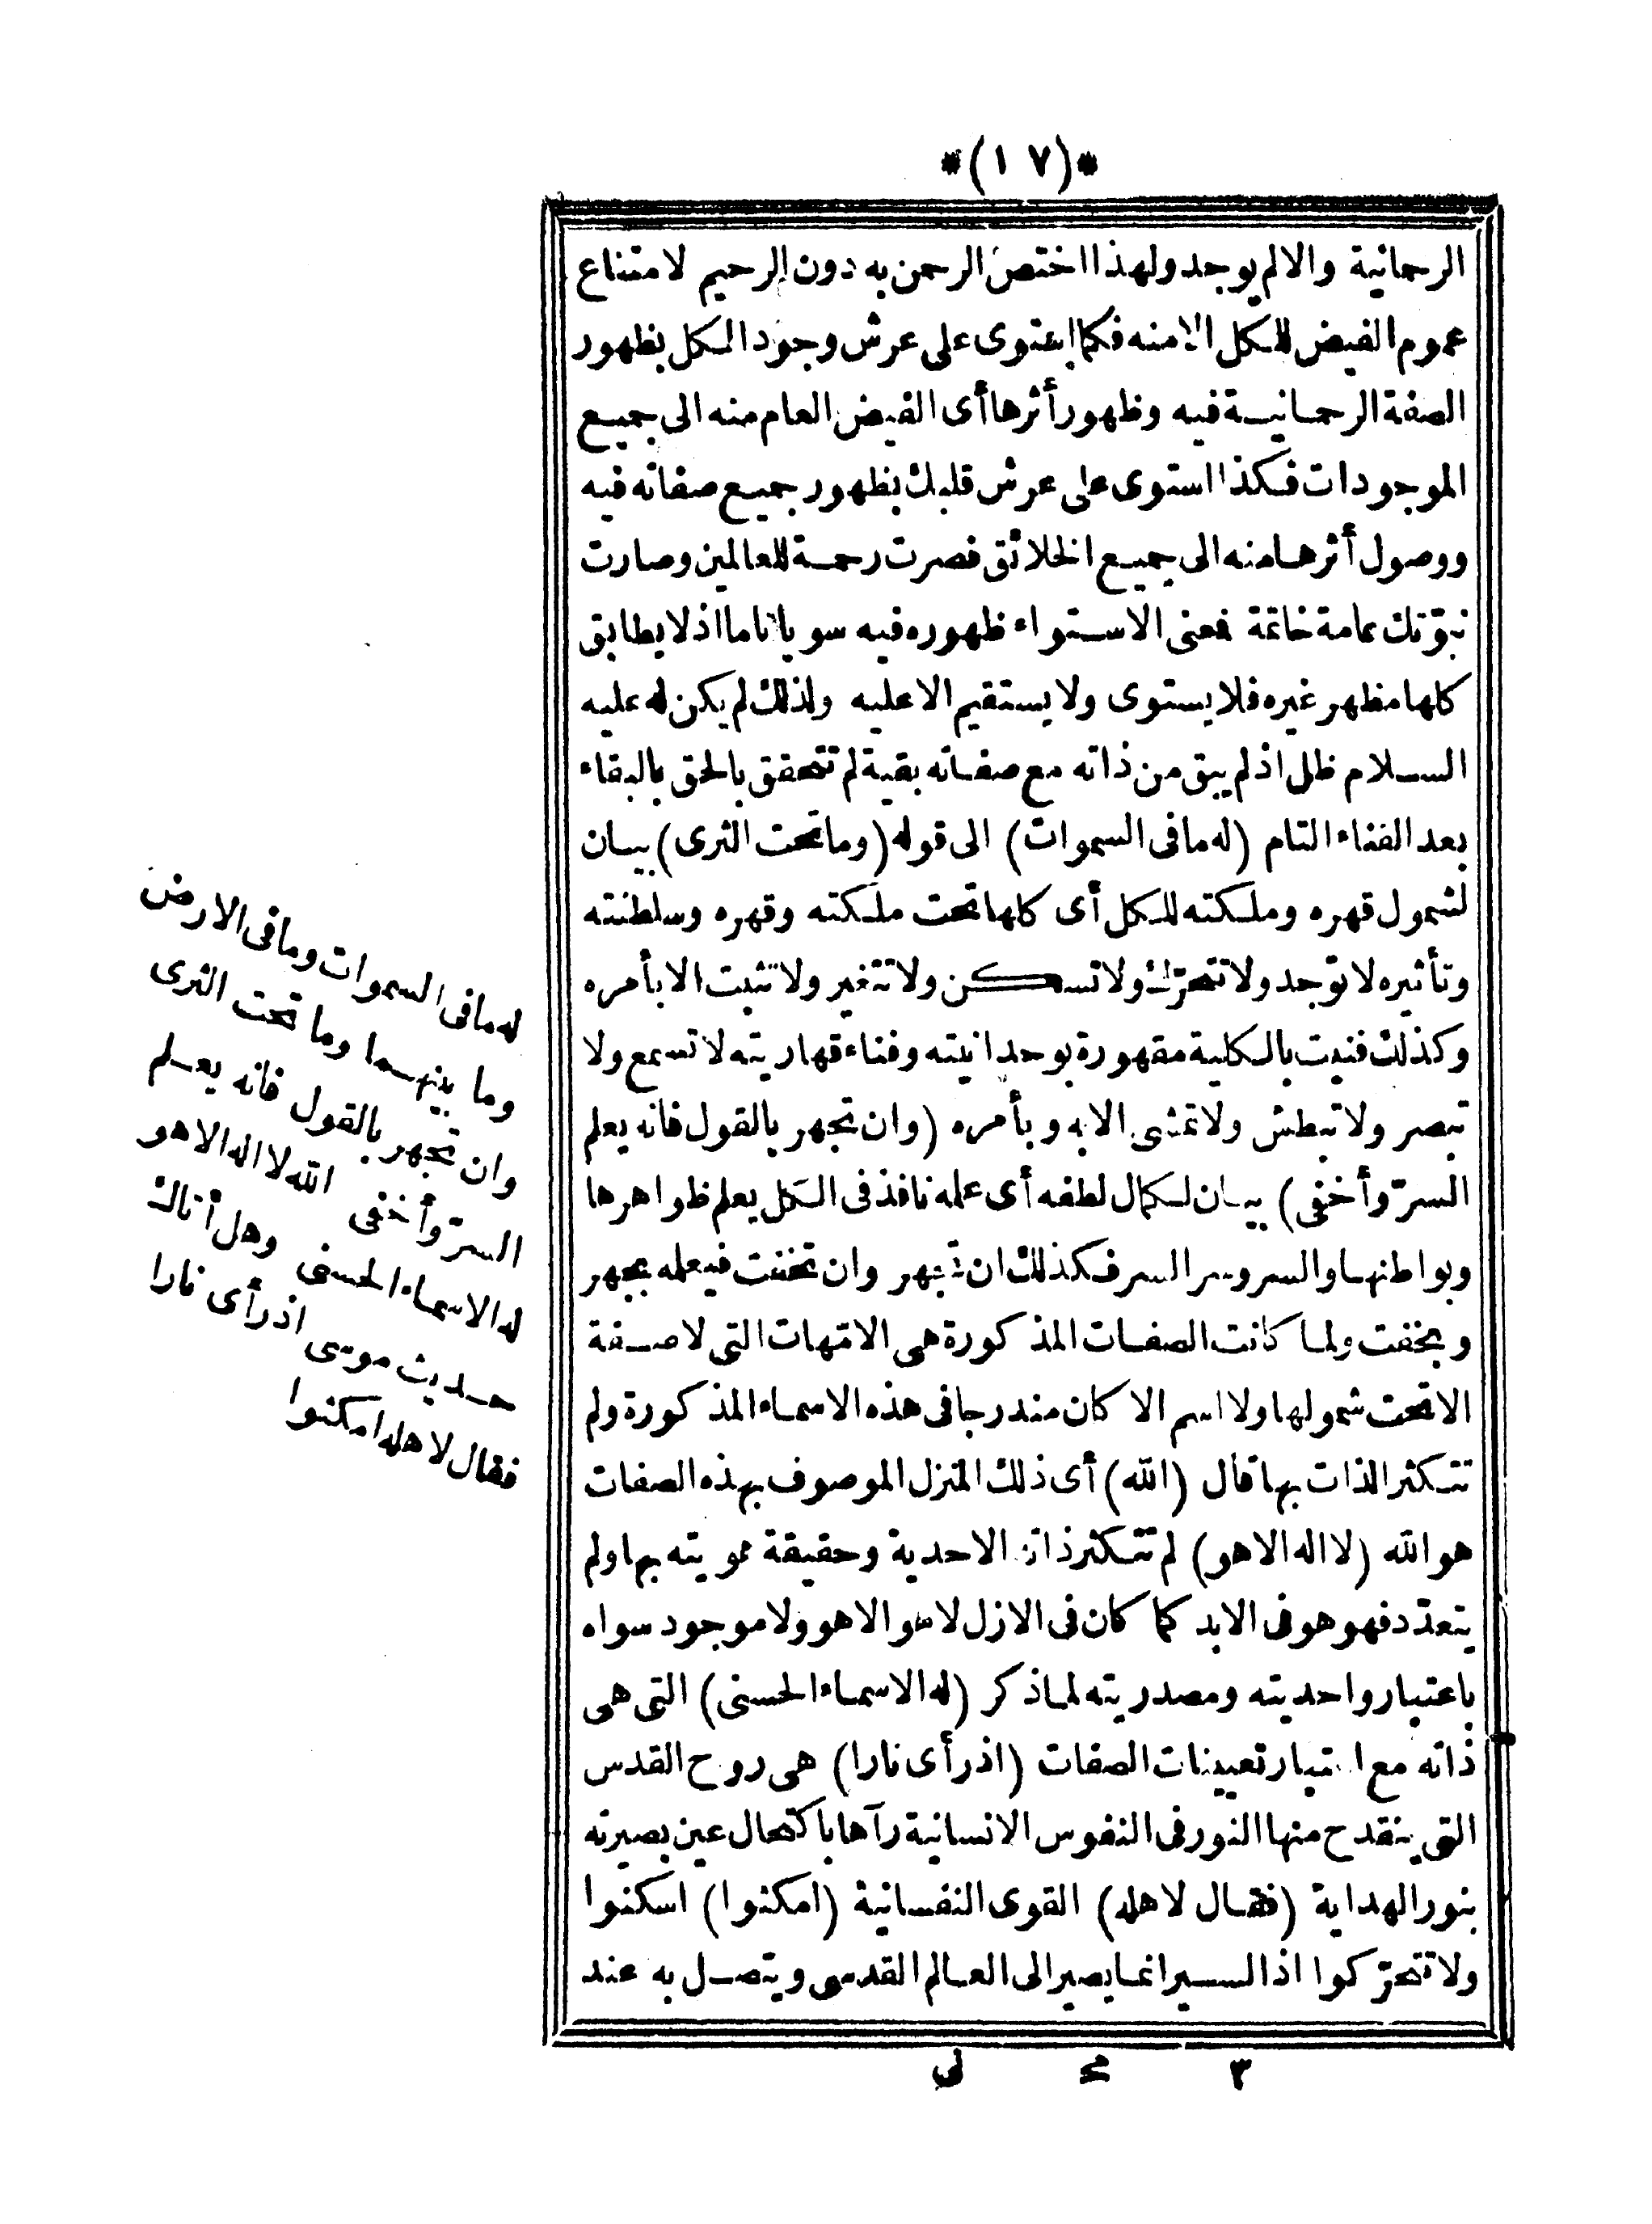 *(١٧)*
الرحمانية والا لم يوجد ولهذا اختص الرحمن به دون الرحيم لامتناع
عموم الفيض للكل الا منه فكما استوى على عرش وجود الكل بظهور
الصفة الرحمانية فيه وظهور أثرها أى الفيض العام منه الى جميع
الموجودات فكذا استوى على عرش قلبك بظهور جميع صفاته فيه
ووصول أثرها منه الى جميع الخلائق فصرت رحمة للعالمين وصارت
نبوّتك عامة خاتمة فمعنى الاستواء ظهوره فيه سويا تاما اذ لا يطابق
كلها مظهر غيره فلا يستوى ولا يستقيم الا عليه ولذلك لم يكن له عليه
السلام ظل اذ لم يبق من ذاته مع صفاته بقية لم تتحقق بالحق بالبقاء
بعد الفناء التام (له ما فى السموات) الى قوله (وما تحت الثرى) بيان
لشمول قهره وملكته للكل أى كلها تحت ملكته وقهره وسلطنته
وتأثيره لا توجد ولا تتحرّك ولا تسكن ولا تتغير ولا تثبت الا بأمره
وكذلك فنيت بالكلية مقهورة بوحدانيته وفناء قهاريته لا تسمع ولا
تبصر ولا تبطش ولا تمشى الا به وبأمره (وان تجهر بالقول فانه يعلم
السرّ وأخفى) بيان لكمال لطفه أى علمه نافذ فى الكل يعلم ظواهرها
وبواطنها والسر وسر السر فكذلك ان تجهر وان تخفت فيعلمه بجهر
وبخفت ولما كانت الصفات المذكورة هى الامّهات التى لا صفة
الا تحت شمولها ولا اسم الا كان مندرجا فى هذه الاسماء المذكورة ولم
تتكثر الذات بها قال (الله) أى ذلك المنزل الموصوف بهذه الصفات
هو الله (لا اله الا هو) لم تتكثر ذاته الاحدية وحقيقة هويته بها ولم
يتعدّد فهو هو فى الابد كما كان فى الازل لا هو الا هو ولا موجود سواه
باعتبار واحديته ومصدريته لما ذكر (له الاسماء الحسنى) التى هى
ذاته مع اعتبار تعيينات الصفات (اذ رأى نارا) هى روح القدس
التى ينقدح منها النور فى النفوس الانسانية رآها باكتحال عين بصيرته
بنور الهداية (فقال لاهله) القوى النفسانية (امكثوا) اسكنوا
ولا تتحرّكوا اذ السير انما يصير الى العالم القدسى ويتصل به عند
له ما فى السموات وما فى الارض
وما بينهما وما تحت الثرى
وان تجهر بالقول فانه يعلم
السرّ وأخفى الله لا اله الا هو
له الاسماء الحسنى وهل أتاك
حديث موسى اذ رأى نارا
فقال لاهله امكثوا
٣ مح نى